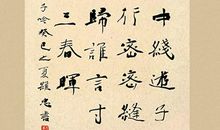 中綫遊子
行密密縫
歸誰言寸
三春暉
子吟癸巳之夏書